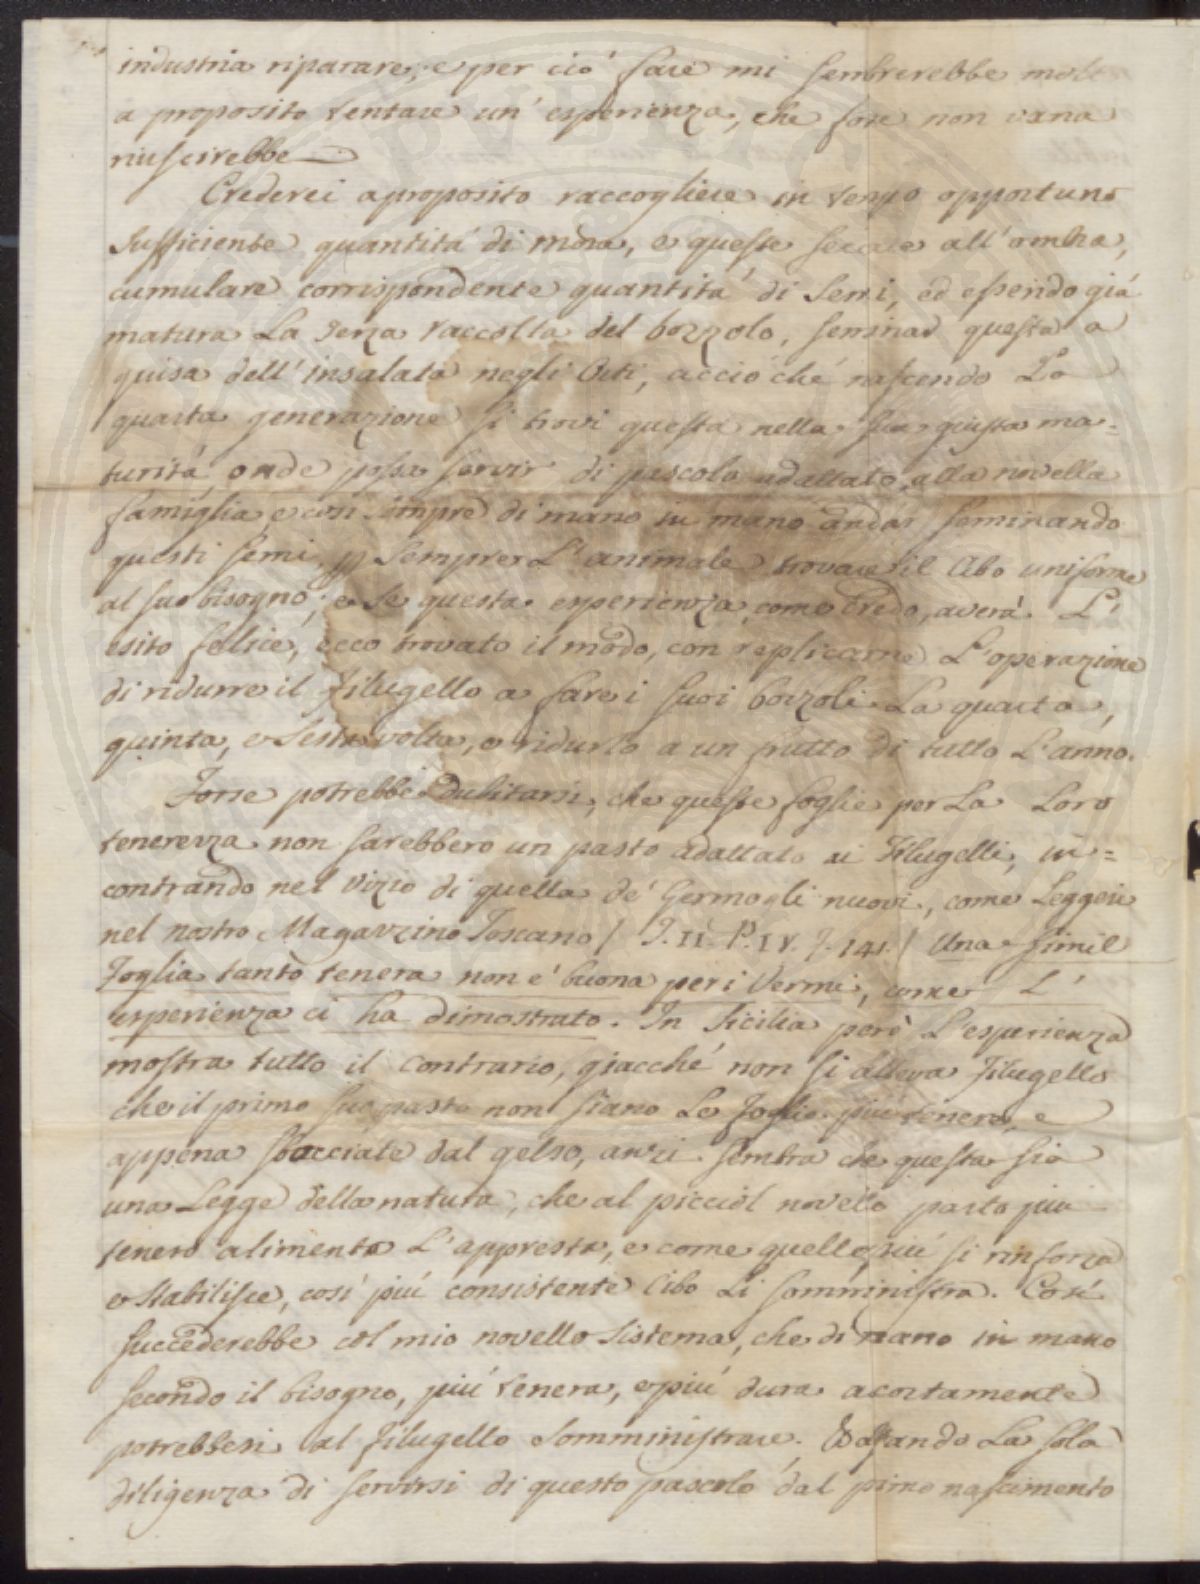 industria riparare; e per ció fare mi sembrerebbe molto
a proposito tentare un' esperienza, che forse non vana
riuscirebbe
Crederei aproposito raccogliere in tempo opportuno
sufficiente quantitá di mora, e queste seccare all' ombra,
cumulare corrispondente quantitá di semi, ed essendo giá
matura La Terza raccolta del bozzolo, seminar questa a
guisa dell' insalata negli Orti, acció ché nascendo La
quarta generazione si trovi questa nella sua giusta ma=
turitá onde possa servir di pascolo adattato alla novella
famiglia, e cosi sempre di mano in mano andar seminando
questi semi, p Sempre L' animale trovare il Cibo uniforme
al suo bisogno; e Se questa esperienza, come Credo, averá L'
esito felice, ecco trovato il modo, con replicarne L'operazione
di ridurre il Filugello a fare i suoi bozzoli La quarta,
quinta, e Sesta volta, e ridurlo a un frutto di tutto L'anno.
Forse potrebbe dubitarsi, che queste foglie per La Loro
tenerezza non sarebbero un pasto adattato ai Filugelli, in=
contrando nel Vizio di quella de' Germogli nuovi, come Leggesi
nel nostro Magazzino Toscano / T. II. P. IV. f. 141. / Una simil
Foglia tanto tenera non é buona per i Vermi, come L'
esperienza ci ha dimostrato. In Sicilia peró L'esperienza
mostra tutto il contrario, giacché non si alleva Filugello
che il primo suo pasto non siano Le foglie piú tenere, e
appena sbocciate dal gelso, anzi sembra che questa sia
una Legge della natura, che al picciol novello parto piú
tenero alimento L' appresta, e come quello piú si rinforza
e Stabilisce, cosí piú consistente Cibo Li somministra. Cosí
succederebbe col mio novello Sistema, che di mano in mano
secondo il bisogno, piú tenera, e piú dura acortamente
potrebbesi al filugello Somministrare. Ed usando La sola
diligenza di servirsi di questo pascolo dal primo nascimento